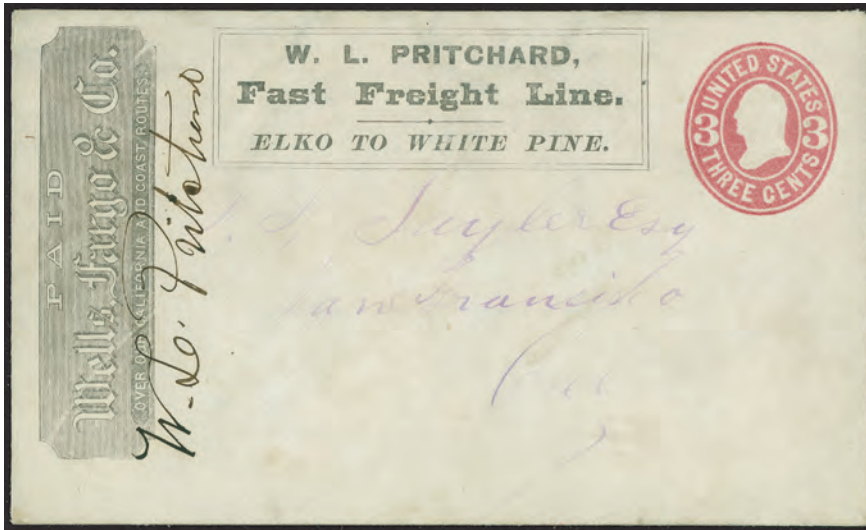 PAID
Wells, Fargo & Co.
OVER OUR CALIFORNIA AND COAST ROUTES.
W. L. Pritchard
W. L. PRITCHARD,
Fast Freight Line.
ELKO TO WHITE PINE.
UNITED STATES
3 3
THREE CENTS
Esq
San Francisco